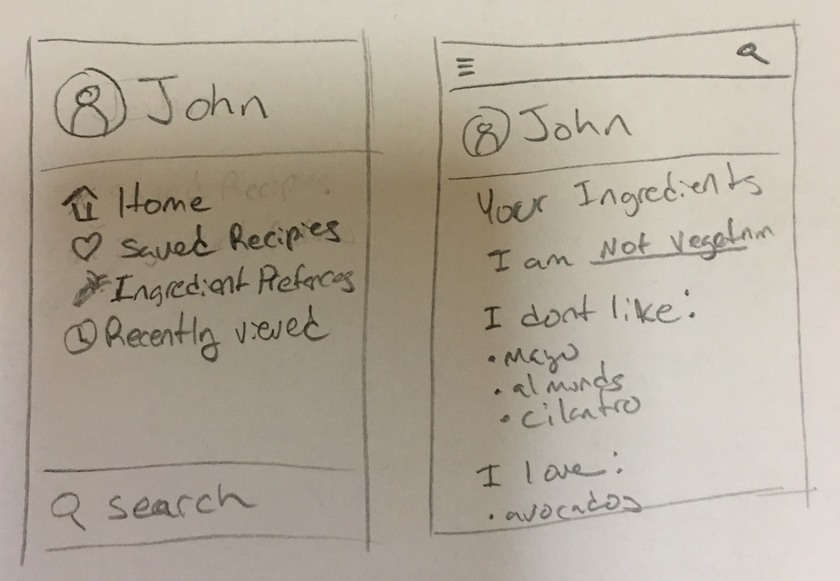 John
Home
Saved Recipies
Ingredient Prefernces
Recently viewed
search
John
Your Ingredients
I am Not Vegetarian
I dont like:
• mayo
• almonds
• cilantro
I love:
• avocados